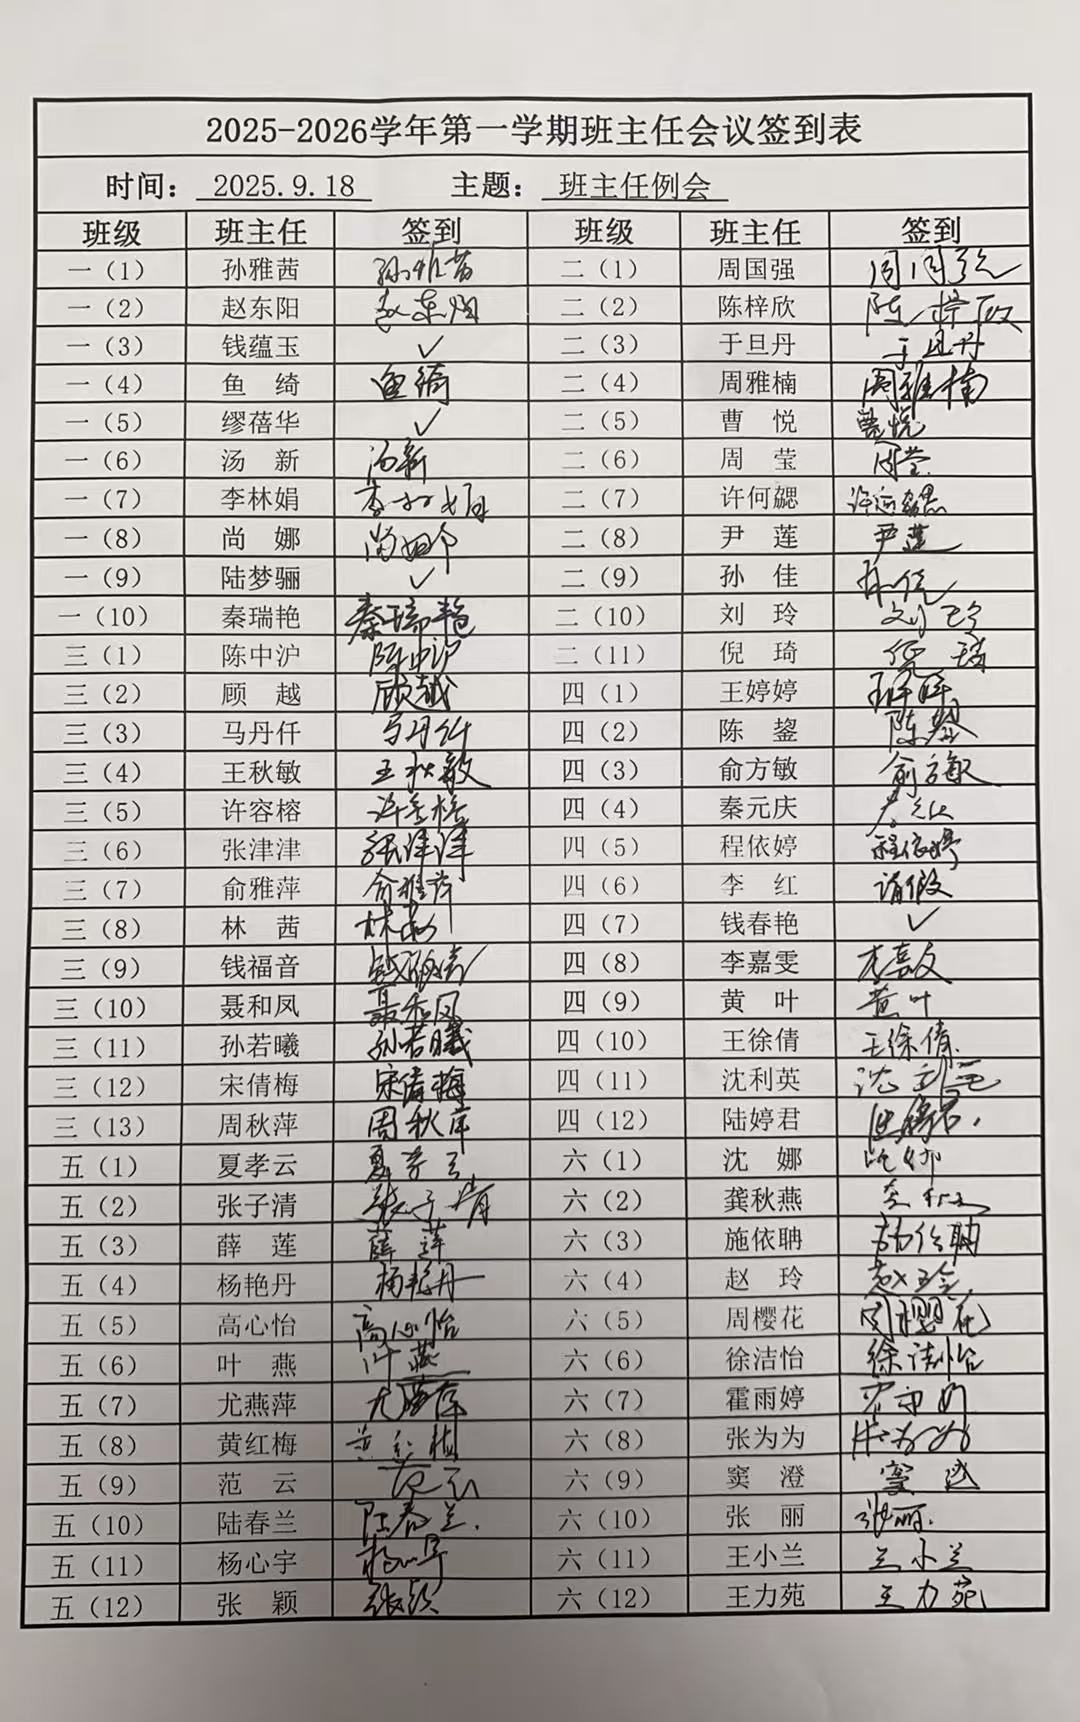 2025-2026学年第一学期班主任会议签到表
时间： 2025.9.18 主题： 班主任例会
班级 班主任 签到 班级 班主任 签到
一（1） 孙雅茜 孙雅茜 二（1） 周国强 周国强
一（2） 赵东阳 赵东阳 二（2） 陈梓欣 陈梓欣
一（3） 钱蕴玉 ✓ 二（3） 于旦丹 于旦丹
一（4） 鱼 绮 鱼绮 二（4） 周雅楠 周雅楠
一（5） 缪蓓华 ✓ 二（5） 曹 悦 曹悦
一（6） 汤 新 汤新 二（6） 周 莹 周莹
一（7） 李林娟 李林娟 二（7） 许何勰 许何勰
一（8） 尚 娜 尚娜 二（8） 尹 莲 尹莲
一（9） 陆梦骊 ✓ 二（9） 孙 佳 孙佳
一（10） 秦瑞艳 秦瑞艳 二（10） 刘 玲 刘玲
三（1） 陈中沪 陈中沪 二（11） 倪 琦 倪琦
三（2） 顾 越 顾越 四（1） 王婷婷 王婷婷
三（3） 马丹仟 马丹仟 四（2） 陈 鋆 陈鋆
三（4） 王秋敏 王秋敏 四（3） 俞方敏 俞方敏
三（5） 许容榕 许容榕 四（4） 秦元庆
三（6） 张津津 张津津 四（5） 程依婷 程依婷
三（7） 俞雅萍 俞雅萍 四（6） 李 红 请假
三（8） 林 茜 林茜 四（7） 钱春艳 ✓
三（9） 钱福音 钱福音 四（8） 李嘉雯 李嘉雯
三（10） 聂和凤 聂和凤 四（9） 黄 叶 黄叶
三（11） 孙若曦 孙若曦 四（10） 王徐倩 王徐倩
三（12） 宋倩梅 宋倩梅 四（11） 沈利英 沈利英
三（13） 周秋萍 周秋萍 四（12） 陆婷君 陆婷君
五（1） 夏孝云 夏孝云 六（1） 沈 娜 沈娜
五（2） 张子清 张子清 六（2） 龚秋燕
五（3） 薛 莲 薛莲 六（3） 施依聃 施依聃
五（4） 杨艳丹 杨艳丹 六（4） 赵 玲 赵玲
五（5） 高心怡 高心怡 六（5） 周樱花 周樱花
五（6） 叶 燕 叶燕 六（6） 徐洁怡 徐洁怡
五（7） 尤燕萍 尤燕萍 六（7） 霍雨婷
五（8） 黄红梅 黄红梅 六（8） 张为为 张为为
五（9） 范 云 范云 六（9） 窦 澄 窦澄
五（10） 陆春兰 陆春兰 六（10） 张 丽 张丽
五（11） 杨心宇 杨心宇 六（11） 王小兰 王小兰
五（12） 张 颖 张颖 六（12） 王力苑 王力苑